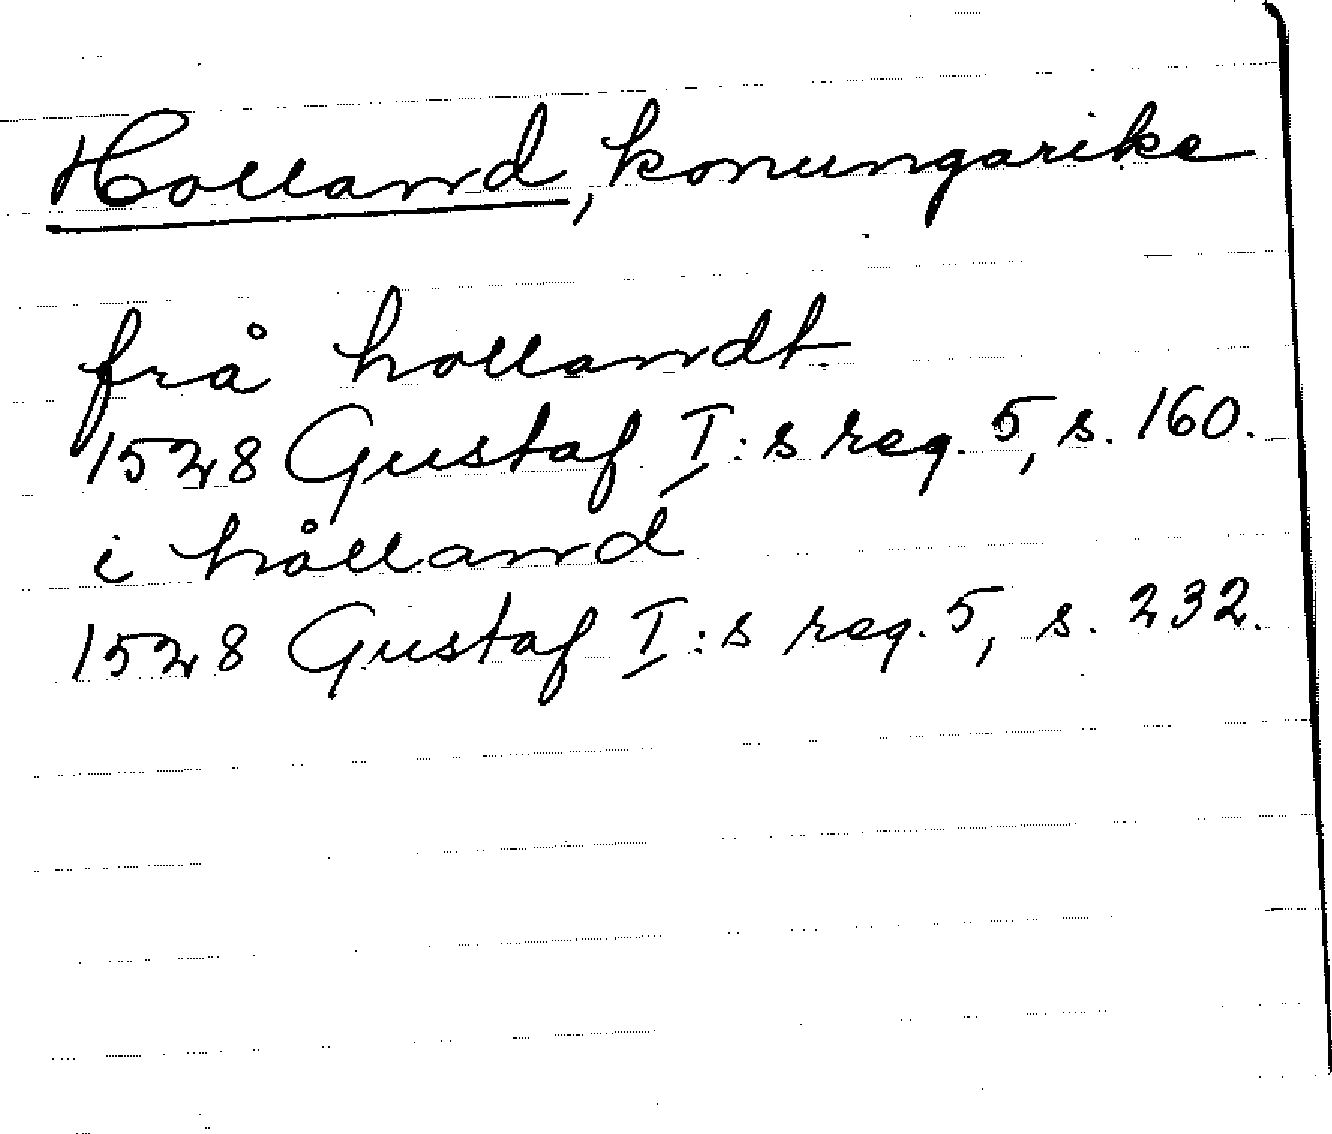 Holland, konungarike
frå hollandt
1528 Gustaf I:s reg. 5, s. 160.
i hålland
1528 Gustaf I:s reg. 5, s. 232.